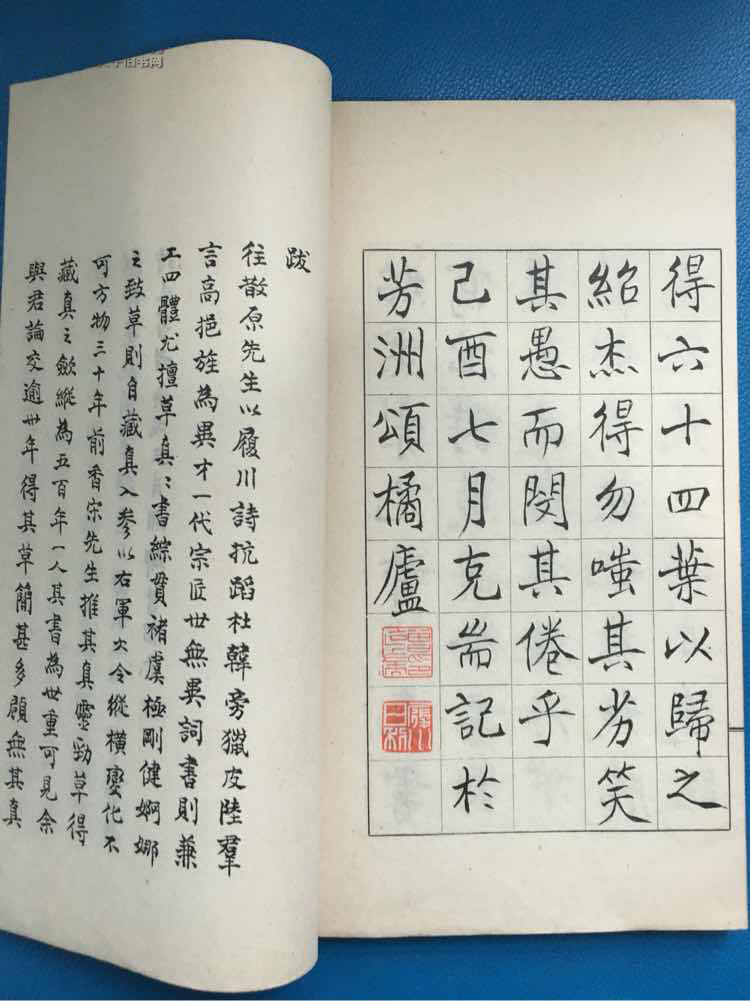 得六十四葉以歸之
紹杰得勿嗤其劣笑
其愚而閔其倦乎
己酉七月克耑記於
芳洲頌橘廬
跋
往散原先生以履川詩抗蹈杜韓旁獵皮陸羣
言高挹旌為異才一代宗匠世無異詞書則兼
工四體尤擅草真〻書綜貫褚虞極剛健婀娜
之致草則自藏真入參以右軍大令縱橫變化不
可方物三十年前香宋先生推其真靈勁草得
藏真之歛縱為五百年一人其書為世重可見余
與君論交逾卅年得其草簡甚多顧無其真